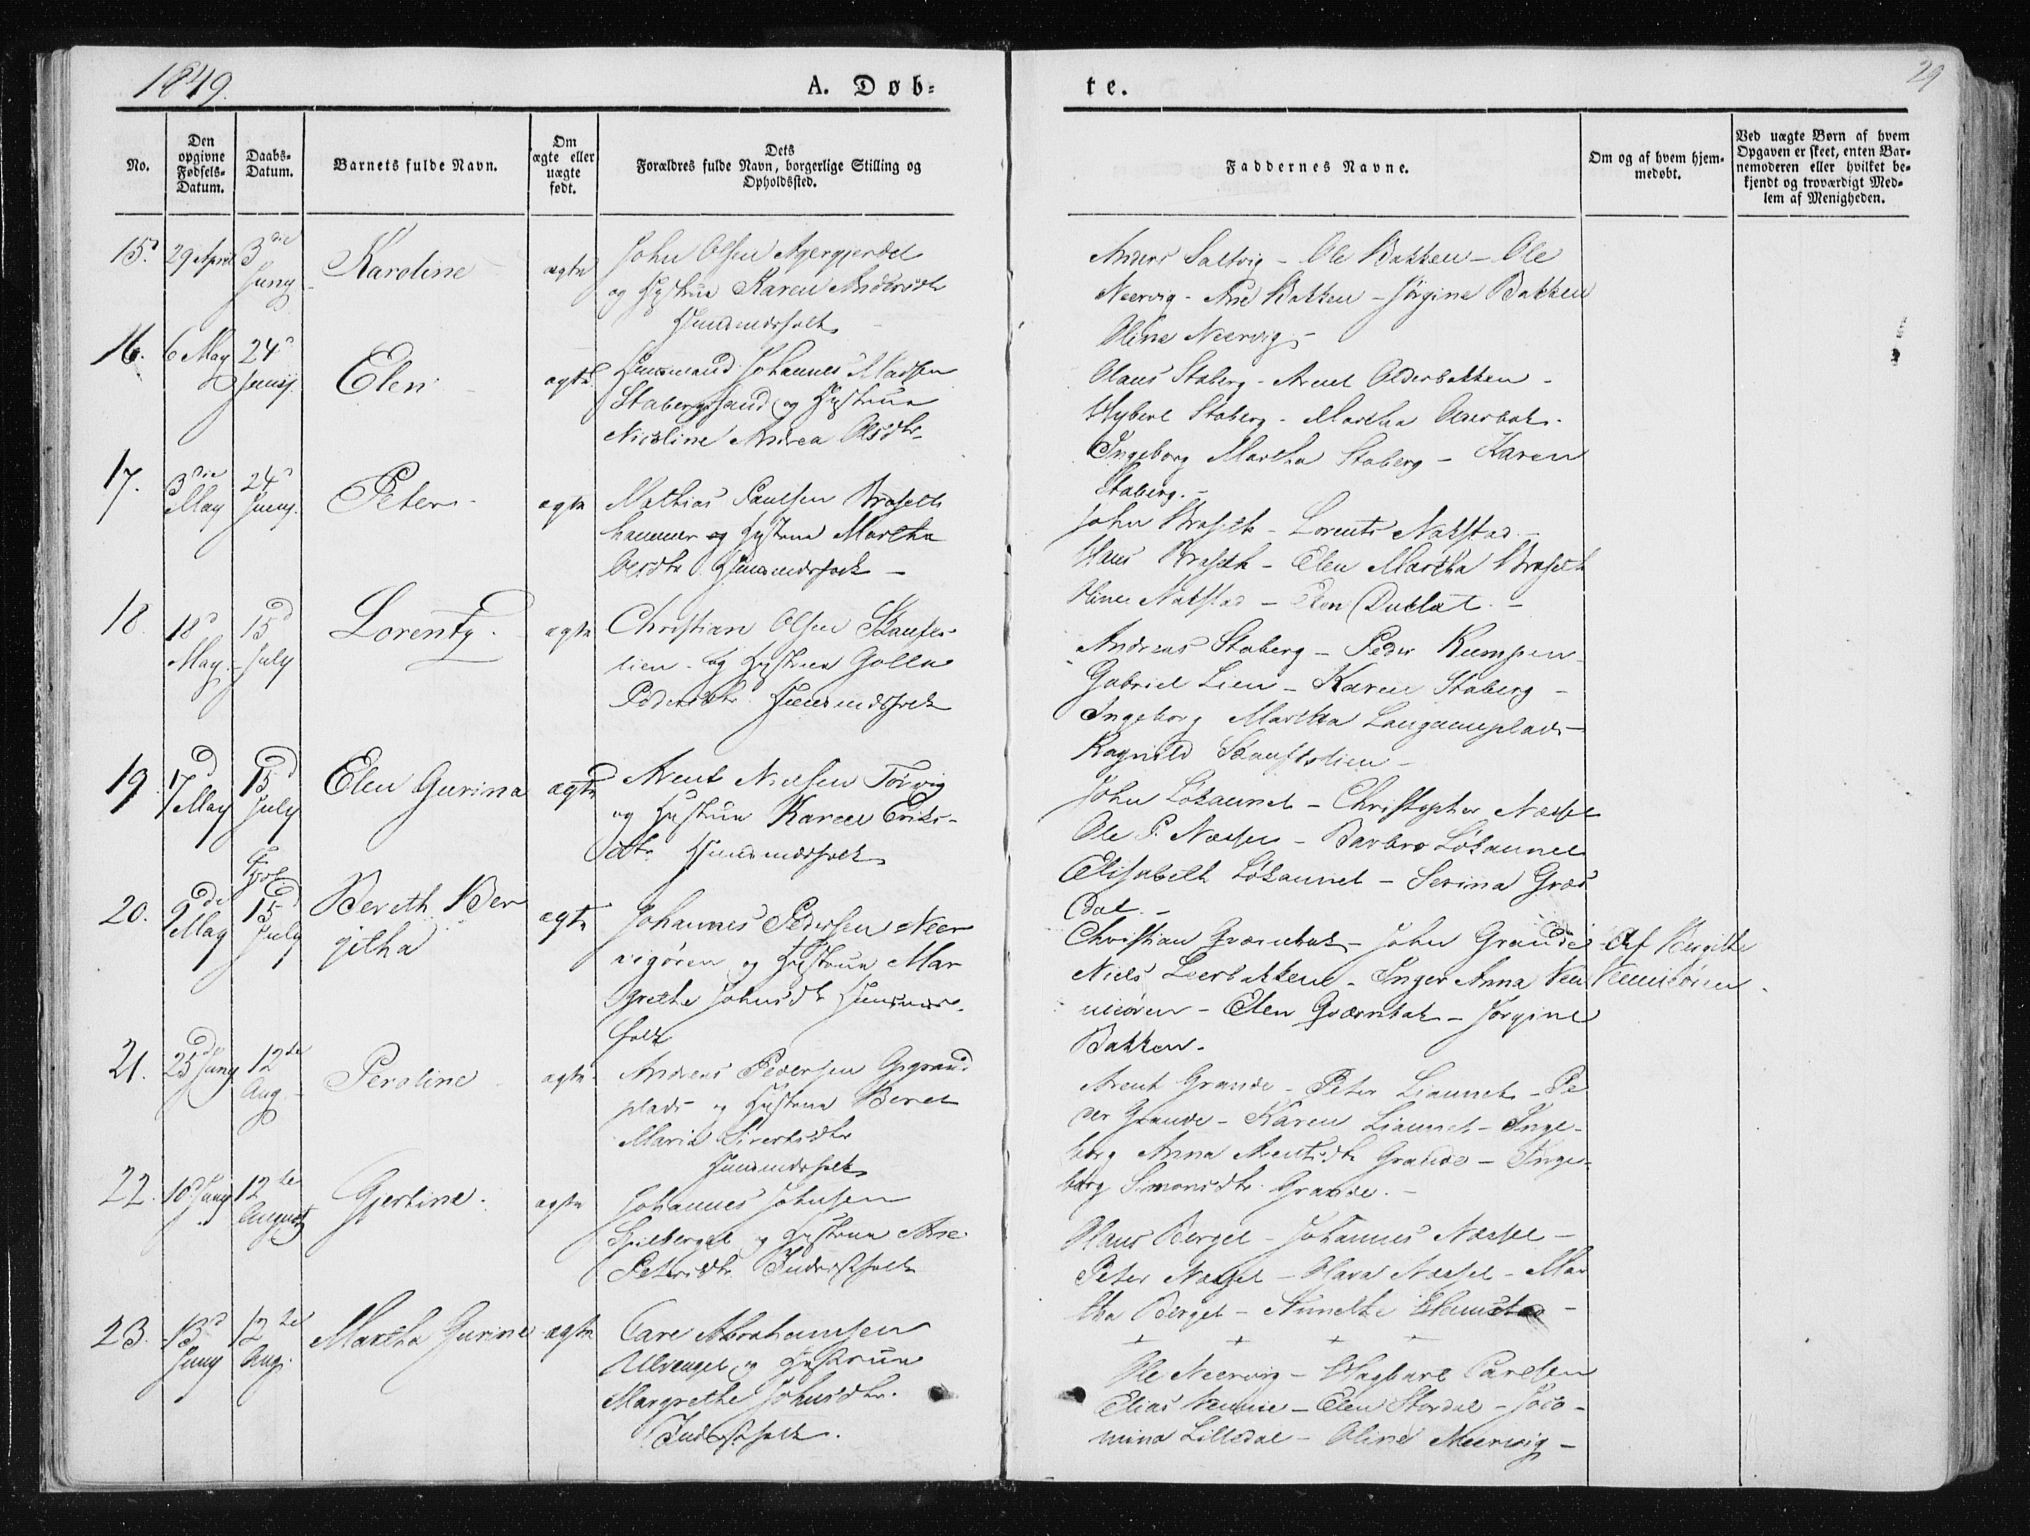 1849.
A. Døb-
te.
29
No.
Den opgivne Fødsels-Datum.
Daabs-Datum.
Barnets fulde Navn.
Om ægte eller uægte født.
Dets Forældres fulde Navn, borgerlige Stilling og Opholdssted.
Faddernes Navne.
Om og af hvem hjem-medøbt.
Ved uægte Børn af hvem Opgaven er skeet, enten Bar-nemoderen eller hvilket be-kjendt og troværdigt Med-lem af Menigheden.
15. 29 April 3die Juny Karoline ægte
John Olsen
og Hystrue Karen Andersdtr
Huusmdsfolk
Anders Saltvig - Ole Bakken - Ole
Neervig - Ane Bakken - Jørgine Bakken
Oline Neervig -
16. 6 May 24d Juny Elen ægte
Huusmand Johannes Madsen
Stabergsaud og Hystrue
Nicoline Andrea Olsdtr
Olaus Staberg - Arent Olderbakken -
Staberg - Martha
Ingeborg Martha Staberg - Karen
Staberg. -
17. 3die May 24d Juny Peter ægte
Mathias Paulsen Braseth
hammer og Hystrue Martha
Olsdtr Huusmdsfolk -
John Braseth - Lorents Nakstad -
Hans Braseth - Elen Martha Braseth
Nakstad - Elen -
18. 18d May 15d July Lorents ægte
Christian Olsen Skaufts
lien - og Hystrue Golla
Pedersdtr Huusmdsfolk
Andreas Staberg - Peder Kumpen
Gabriel Lien - Karen Staberg -
Ingeborg Martha Langauneplads -
Ragnild Skauftslien -
19. 17d May 15d July Elen Gurina ægte
Arent Nielsen Torvig
og Hustrue Karen Eriks-
dtr. Huusmdsfolk
John Løkaunet - Christopher Næsset
Ole P. Næsset - Barbro Løkaunet
Elisabeth Løkaunet - Serina Græs
dal. -
20. 9de May 15d July Bereth Ber
githa
ægte
Johannes Pedersen Neer
vigøren og Hystrue Mar
grethe Johnsdtr Huusmds-
folk
Christian Qværnbak - John Grande
Niels Leerbakken - Inger Anna Ven
nesøren - Elen Qværnbak - Jørgine
Bakken -
Af Birgitte
Vennesøren -
21. 25de Juny 12te Aug. Peroline ægte
Andreas Pedersen Gygrand
plads og Hystrue Beret
Maria Sivertsdtr
Huusmdsfolk
Arent Grande - Peter Liaunet - Pe
der Grande - Karen Liaunet - Inge-
borg Anna Arentsdtr Grande - Inge-
borg Simonsdtr. Grande. -
22. 10d Juny 12te August Gjertine ægte
Johannes Johnsen
Spilberget og Hystrue Ane
Petersdtr Inderstfolk
Hans Berget - Johannes Næsset -
Peter Næsset - Næsset - Mar
tha Berget - Annette
+ + + +
23. 13d Juny 12te Aug. Martha Gurine ægte
Care Abrahamsen
Ulvenget og Hystrue
Margrethe Johnsdtr.
Inderstfolk.
Ole Neervig - Hagbart Carlsen
Elias Vennie - Elen Stordal - Jaco-
mina Lilledal - Oline Neervig -